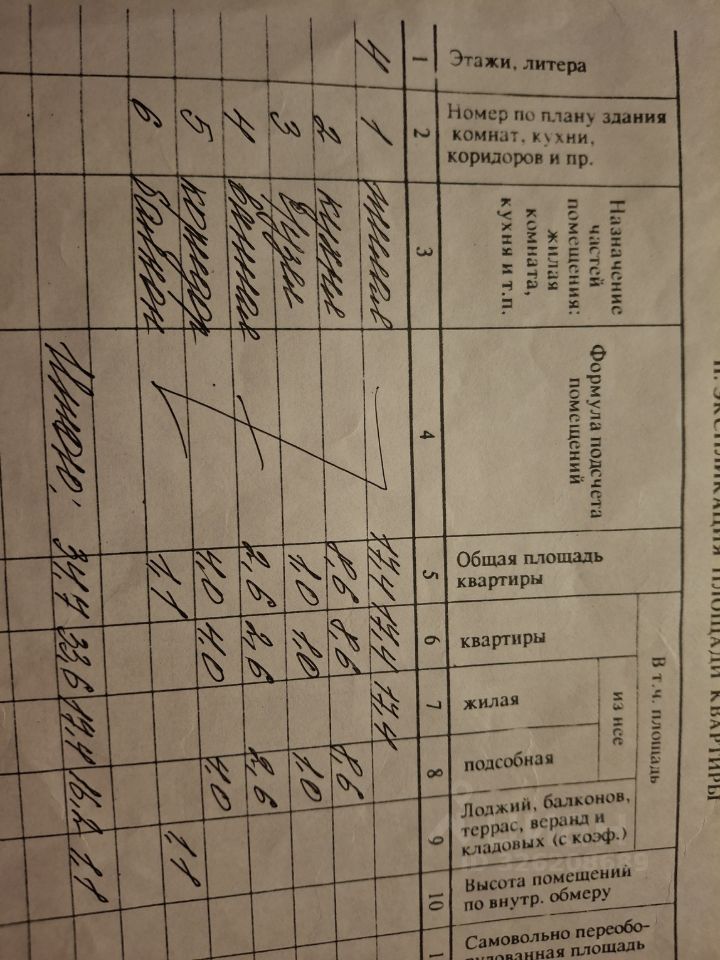 II. ЭКСПЛИКАЦИЯ ПЛОЩАДИ КВАРТИРЫ
Этажи, литера
Номер по плану здания
комнат, кухни,
коридоров и пр.
Назначение
частей
помещения:
жилая
комната,
кухня и т.п.
Формула подсчета
помещений
Общая площадь
квартиры
В т.ч. площадь
квартиры
из нее
жилая
подсобная
Лоджий, балконов,
террас, веранд и
кладовых (с коэф.)
Высота помещений
по внутр. обмеру
Самовольно переобо-
рудованная площадь
1 2 3 4 5 6 7 8 9 10 1
4 1 жилая 17,4 17,4 17,4
2 кухня 8,6 8,6 8,6
3 1,0 1,0 1,0
4 ванная 2,6 2,6 2,6
5 коридор 4,0 4,0 4,0
6 балкон 1,1 1,1
Итого: 34,7 33,6 17,4 16,2 1,1